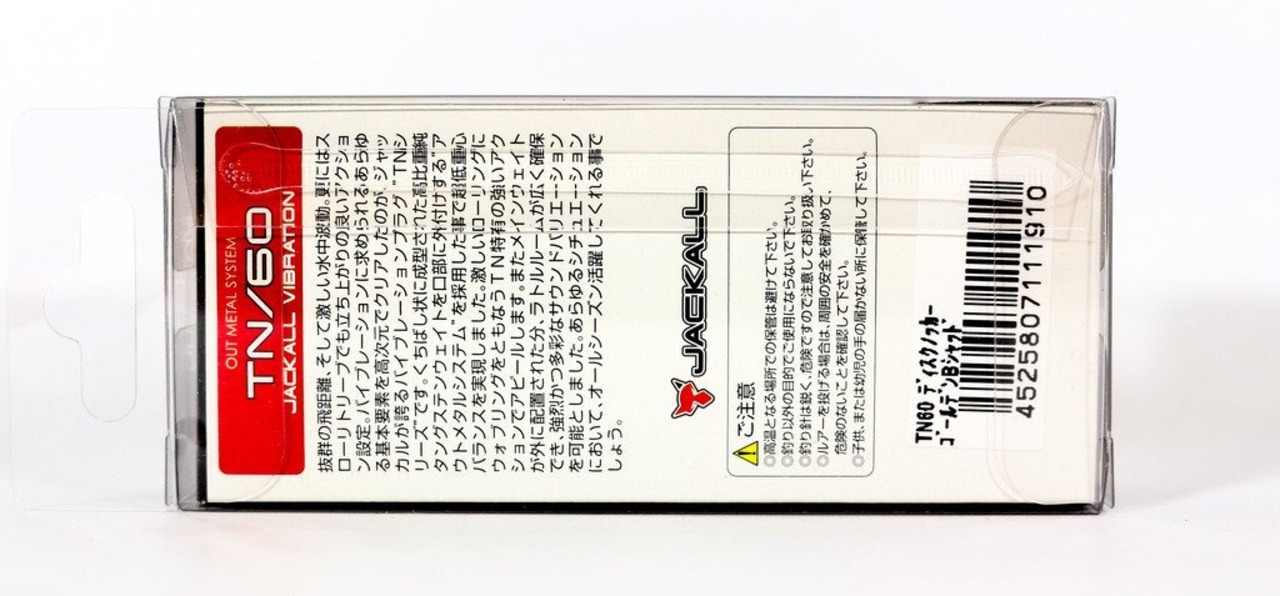 OUT METAL SYSTEM
TN/60
JACKALL VIBRATION
抜群の飛距離、そして激しい水中波動。更にはス
ローリトリーブでも立ち上がりの良いアクショ
ン設定。バイブレーションに求められるあらゆ
る基本要素を高次元でクリアしたのが、ジャッ
カルが誇るバイブレーションプラグ"TNシ
リーズ"です。くちばし状に成型された高比重純
タングステンウェイトを口部に外付けする"ア
ウトメタルシステム"を採用した事で超低重心
バランスを実現しました。激しいローリングに
ウォブリングをともなうTN特有の強いアク
ションでアピールします。またメインウェイト
が外に配置された分、ラトルルームが広く確保
でき、強烈かつ多彩なサウンドバリエーション
を可能としました。あらゆるシチュエーション
において、オールシーズン活躍してくれる事で
しょう。
JACKALL
ご注意
◎高温となる場所での保管は避けて下さい。
◎釣り以外の目的でご使用にならないで下さい。
◎釣り針は鋭く、危険ですので注意してお取り扱い下さい。
◎ルアーを投げる場合は、周囲の安全を確かめて、
危険のないことを確認して下さい。
◎子供、または幼児の手の届かない所に保管して下さい。
TN60 ディスクノッカー
ゴールデンBシャッド
4525807111910